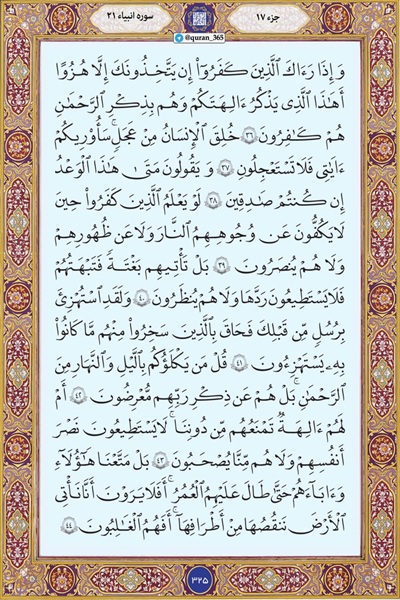 جزء ۱۷
@quran_365
سوره انبیاء ۲۱
وَإِذَا رَءَاكَ ٱلَّذِينَ كَفَرُوٓاْ إِن يَتَّخِذُونَكَ إِلَّا هُزُوًا
أَهَٰذَا ٱلَّذِي يَذْكُرُ ءَالِهَتَكُمْ وَهُم بِذِكْرِ ٱلرَّحْمَٰنِ
هُمْ كَٰفِرُونَ ۳۶ خُلِقَ ٱلْإِنسَٰنُ مِنْ عَجَلٍ ۚ سَأُوْرِيكُمْ
ءَايَٰتِي فَلَا تَسْتَعْجِلُونِ ۳۷ وَيَقُولُونَ مَتَىٰ هَٰذَا ٱلْوَعْدُ
إِن كُنتُمْ صَٰدِقِينَ ۳۸ لَوْ يَعْلَمُ ٱلَّذِينَ كَفَرُواْ حِينَ
لَا يَكُفُّونَ عَن وُجُوهِهِمُ ٱلنَّارَ وَلَا عَن ظُهُورِهِمْ
وَلَا هُمْ يُنصَرُونَ ۳۹ بَلْ تَأْتِيهِم بَغْتَةً فَتَبْهَتُهُمْ
فَلَا يَسْتَطِيعُونَ رَدَّهَا وَلَا هُمْ يُنظَرُونَ ۴۰ وَلَقَدِ ٱسْتُهْزِئَ
بِرُسُلٍ مِّن قَبْلِكَ فَحَاقَ بِٱلَّذِينَ سَخِرُواْ مِنْهُم مَّا كَانُواْ
بِهِۦ يَسْتَهْزِءُونَ ۴۱ قُلْ مَن يَكْلَؤُكُم بِٱلَّيْلِ وَٱلنَّهَارِ مِنَ
ٱلرَّحْمَٰنِ ۚ بَلْ هُمْ عَن ذِكْرِ رَبِّهِم مُّعْرِضُونَ ۴۲ أَمْ
لَهُمْ ءَالِهَةٌ تَمْنَعُهُم مِّن دُونِنَا ۚ لَا يَسْتَطِيعُونَ نَصْرَ
أَنفُسِهِمْ وَلَا هُم مِّنَّا يُصْحَبُونَ ۴۳ بَلْ مَتَّعْنَا هَٰٓؤُلَآءِ
وَءَابَآءَهُمْ حَتَّىٰ طَالَ عَلَيْهِمُ ٱلْعُمُرُ ۗ أَفَلَا يَرَوْنَ أَنَّا نَأْتِي
ٱلْأَرْضَ نَنقُصُهَا مِنْ أَطْرَافِهَآ ۚ أَفَهُمُ ٱلْغَٰلِبُونَ ۴۴
۳۲۵